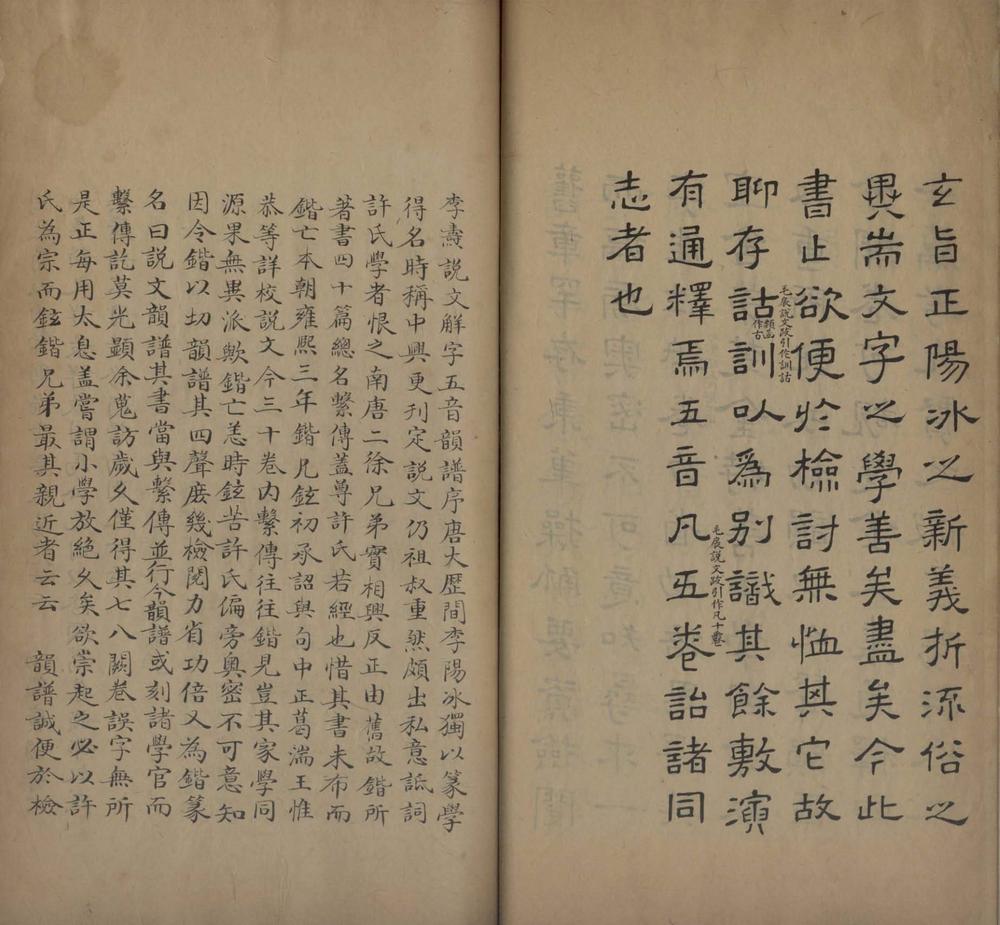 玄旨正陽冰之新義折流俗之
異耑文字之學善矣盡矣今此
書止欲便於檢討無恤其它故
聊存詁訓以爲别識其餘敷演
毛扆說文跋引作訓詁
類函作古
有通釋焉五音凡五卷詒諸同
毛扆說文跋引作凡十卷
志者也
李燾說文解字五音韻譜序唐大歷間李陽冰獨以篆學
得名時稱中興更刊定說文仍祖叔重然頗出私意詆訶
許氏學者恨之南唐二徐兄弟實相與反正由舊故鍇所
著書四十篇總名繫傳蓋尊許氏若經也惜其書未布而
鍇亡本朝雍熙三年鍇兄鉉初承詔與句中正葛湍王惟
恭等詳校說文今三十卷內繫傳往往鍇見豈其家學同
源果無異派歟鍇亡恙時鉉苦許氏偏旁奧密不可意知
因令鍇以切韻譜其四聲庶幾檢閱力省功倍又為鍇篆
名曰說文韻譜其書當與繫傳並行今韻譜或刻諸學官而
繫傳訖莫光顯余蒐訪歲久僅得其七八闕卷誤字無所
是正每用太息蓋嘗謂小學放絕久矣欲崇起之必以許
氏為宗而鉉鍇兄弟最其親近者云云　韻譜誠便於檢